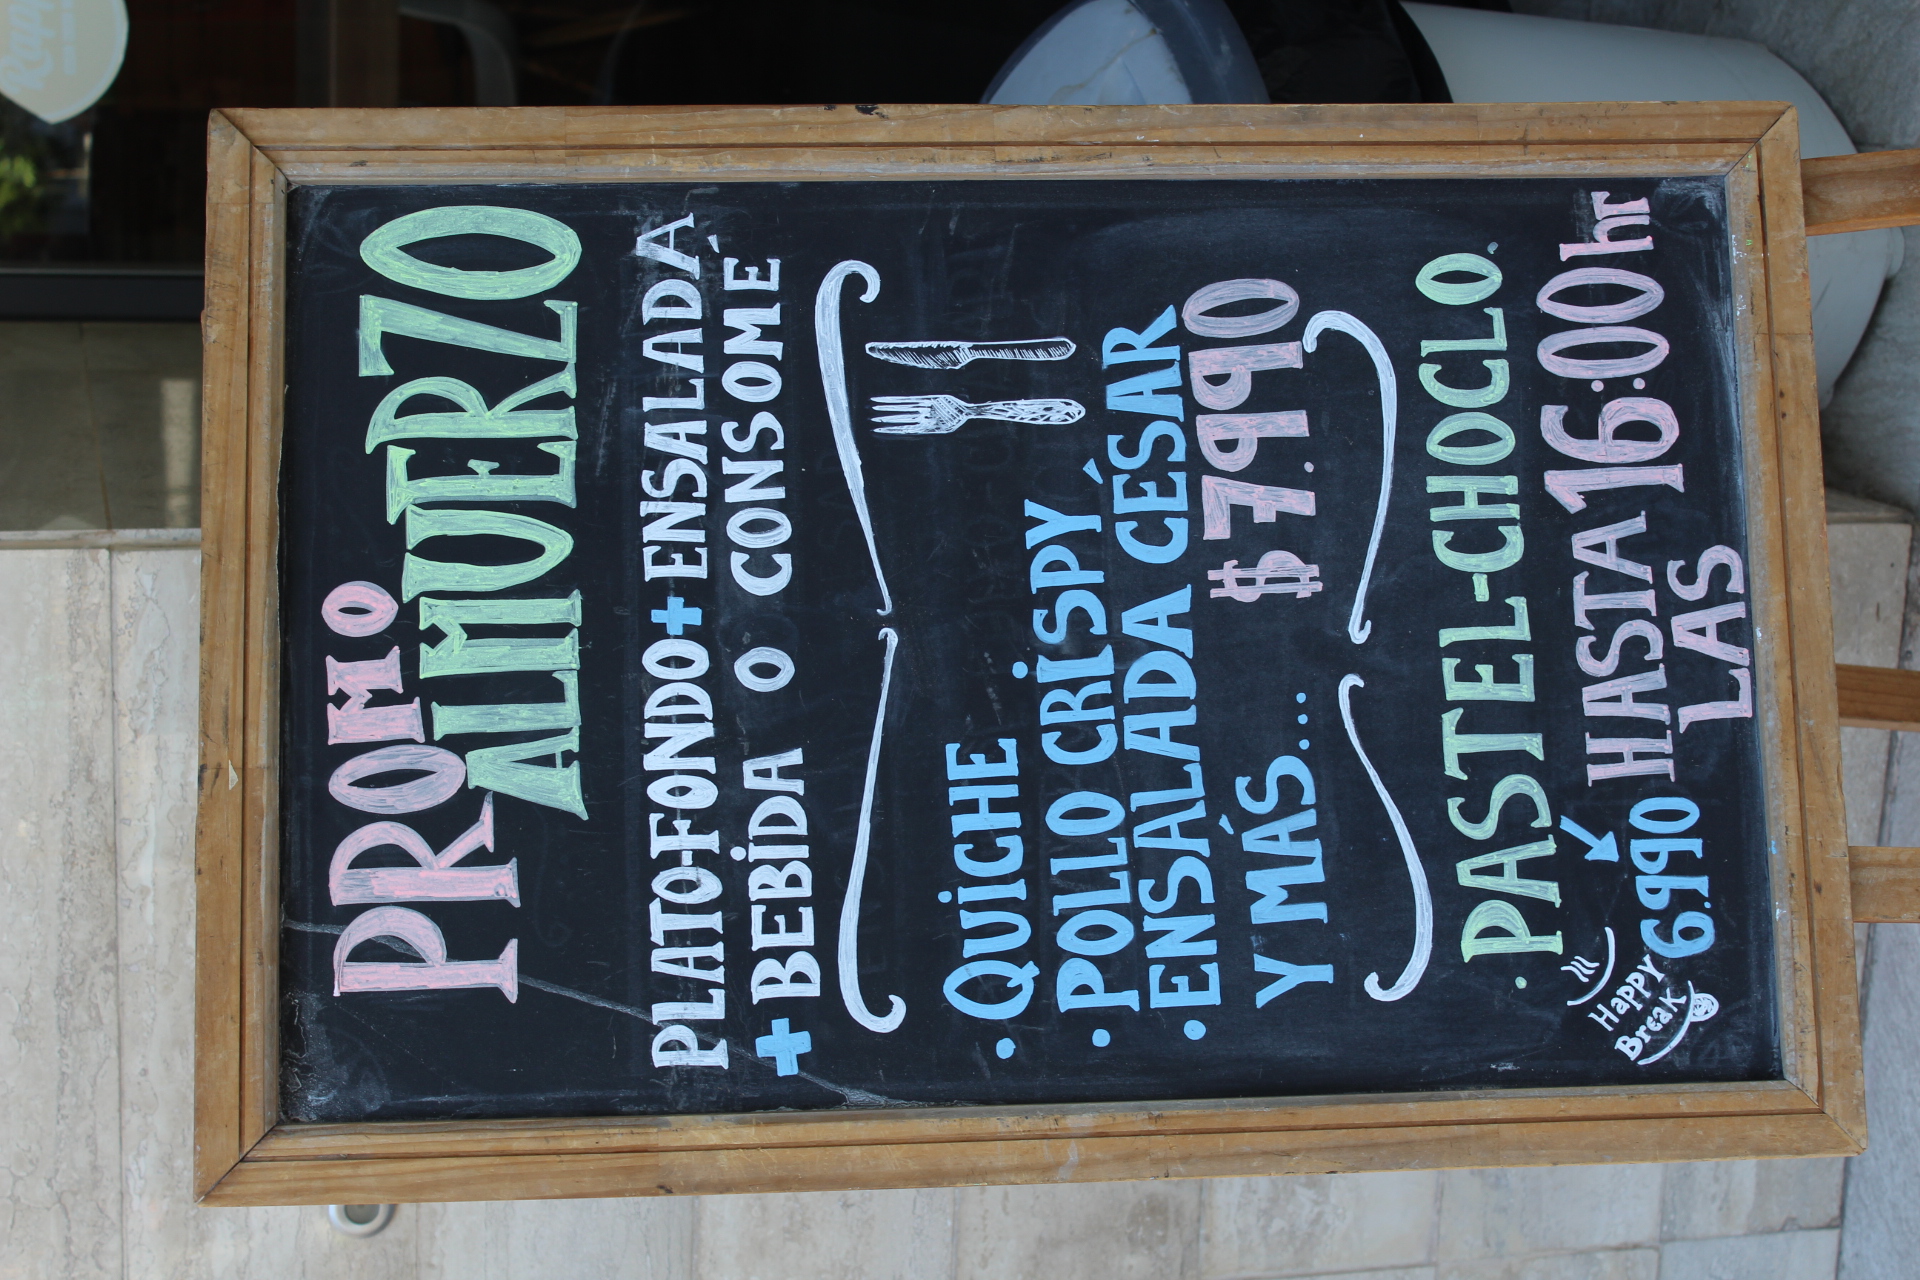 PROMO
ALMUERZO
PLATO-FONDO + ENSALADA
+ BEBIDA O CONSOMÉ
· QUICHE
· POLLO CRISPY
· ENSALADA CÉSAR
Y MÁS... $7.990
· PASTEL-CHOCLO.
Happy
Break
6.990
HASTA 16:00 hr
LAS